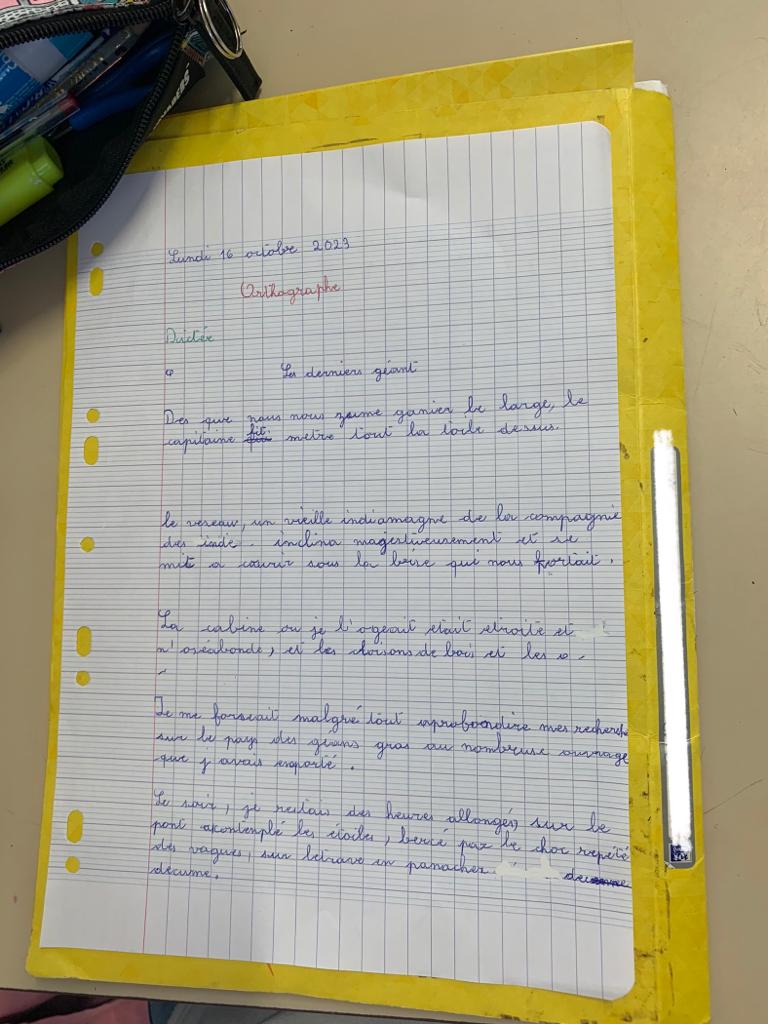 Lundi 16 octobre 2023
Orthographe
Dictée
Les derniers géant
Des que nous nous zeume ganier le large, le
capitaine fit metre tout la toile dessus.
le veseau, un vieille indiamagne de la compagnie
des inde. inclina magestieusement et se
mit a courir sous la beise qui nous portait.
La cabine ou je l'ogeait etait etroite et
n'oséabonde, et les cloisons de bois et les o.
Je me forseait malgré tout aprofondire mes recherch
sur le pays des géans gras au nombreuse ouvrage
que j'avais enporté.
Le soir, je restais des heures allongés sur le
pont akontenplé les étoiles, bercé par le choc repété
des vagues, sur letrave en panacher
décume.